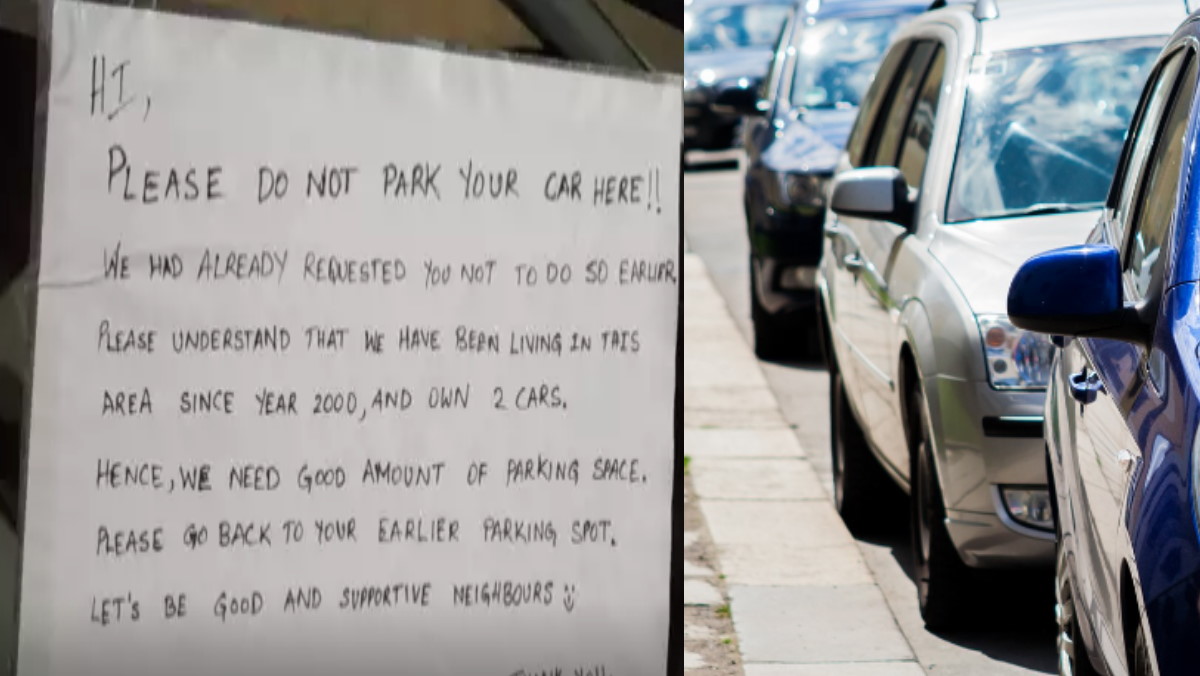 HI,
PLEASE DO NOT PARK YOUR CAR HERE!!
WE HAD ALREADY REQUESTED YOU NOT TO DO SO EARLIER.
PLEASE UNDERSTAND THAT WE HAVE BEEN LIVING IN THIS
AREA SINCE YEAR 2000, AND OWN 2 CARS.
HENCE, WE NEED GOOD AMOUNT OF PARKING SPACE.
PLEASE GO BACK TO YOUR EARLIER PARKING SPOT.
LET'S BE GOOD AND SUPPORTIVE NEIGHBOURS